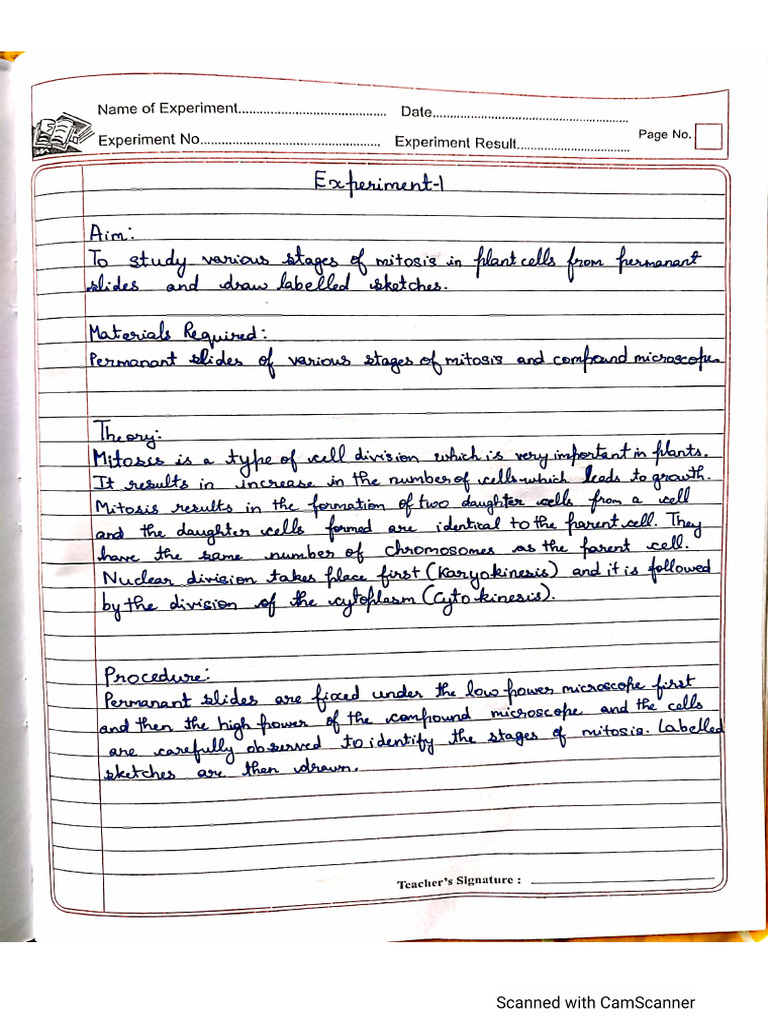 Name of Experiment........................................ Date....................................................
Experiment No................................................. Experiment Result.............................. Page No.
Experiment-1
Aim:
To study various stages of mitosis in plant cells from permanant
slides and draw labelled sketches.
Materials Required:
Permanant slides of various stages of mitosis and compound microscope.
Theory:
Mitosis is a type of cell division which is very important in plants.
It results in increase in the number of cells which leads to growth.
Mitosis results in the formation of two daughter cells from a cell
and the daughter cells formed are identical to the parent cell. They
have the same number of chromosomes as the parent cell.
Nuclear division takes place first (Karyokinesis) and it is followed
by the division of the cytoplasm (Cytokinesis).
Procedure:
Permanant slides are fixed under the low power microscope first
and then the high power of the compound microscope and the cells
are carefully observed to identify the stages of mitosis. Labelled
sketches are then drawn.
Teacher's Signature :
Scanned with CamScanner